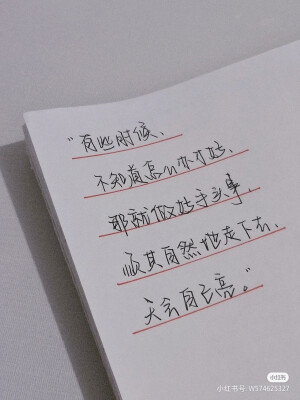 “有些时候、
不知道怎么办才好、
那就做好手头事、
顺其自然地走下去、
天会自己亮。”
小红书
小红书号:W574625327